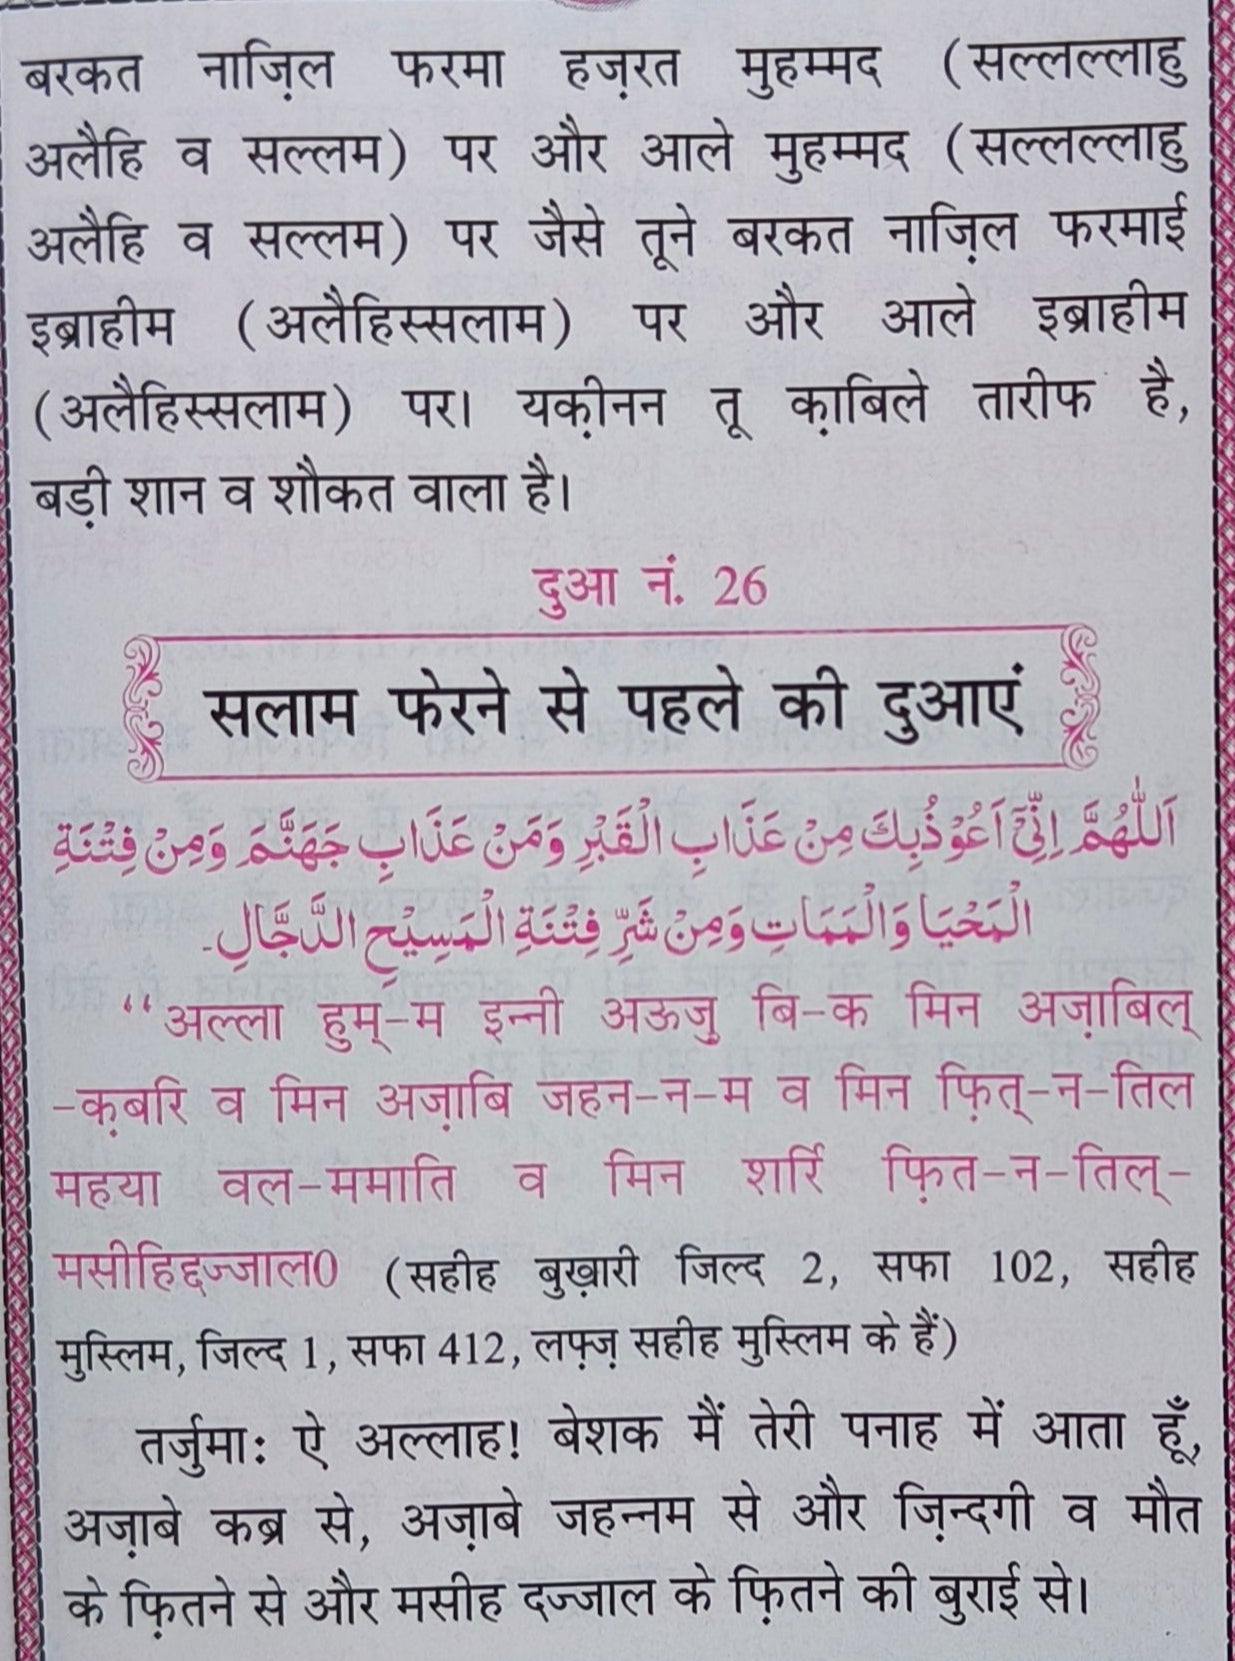 बरकत नाज़िल फरमा हज़रत मुहम्मद (सल्लल्लाहु
अलैहि व सल्लम) पर और आले मुहम्मद (सल्लल्लाहु
अलैहि व सल्लम) पर जैसे तूने बरकत नाज़िल फरमाई
इब्राहीम (अलैहिस्सलाम) पर और आले इब्राहीम
(अलैहिस्सलाम) पर। यक़ीनन तू क़ाबिले तारीफ है,
बड़ी शान व शौकत वाला है।
दुआ नं. 26
सलाम फेरने से पहले की दुआएं
اَللّٰهُمَّ اِنِّيْٓ اَعُوْذُبِكَ مِنْ عَذَابِ الْقَبْرِ وَمَنْ عَذَابِ جَهَنَّمَ وَمِنْ فِتْنَةِ
الْمَحْيَا وَالْمَمَاتِ وَمِنْ شَرِّ فِتْنَةِ الْمَسِيْحِ الدَّجَّالِ۔
“अल्ला हुम्-म इन्नी अऊजु बि-क मिन अज़ाबिल्
-क़बरि व मिन अज़ाबि जहन-न-म व मिन फ़ित्-न-तिल
महया वल-ममाति व मिन शर्रि फ़ित-न-तिल्-
मसीहिद्दज्जाल0 (सहीह बुख़ारी जिल्द 2, सफा 102, सहीह
मुस्लिम, जिल्द 1, सफा 412, लफ़्ज़ सहीह मुस्लिम के हैं)
तर्जुमा: ऐ अल्लाह! बेशक मैं तेरी पनाह में आता हूँ,
अज़ाबे कब्र से, अज़ाबे जहन्नम से और ज़िन्दगी व मौत
के फ़ितने से और मसीह दज्जाल के फ़ितने की बुराई से।